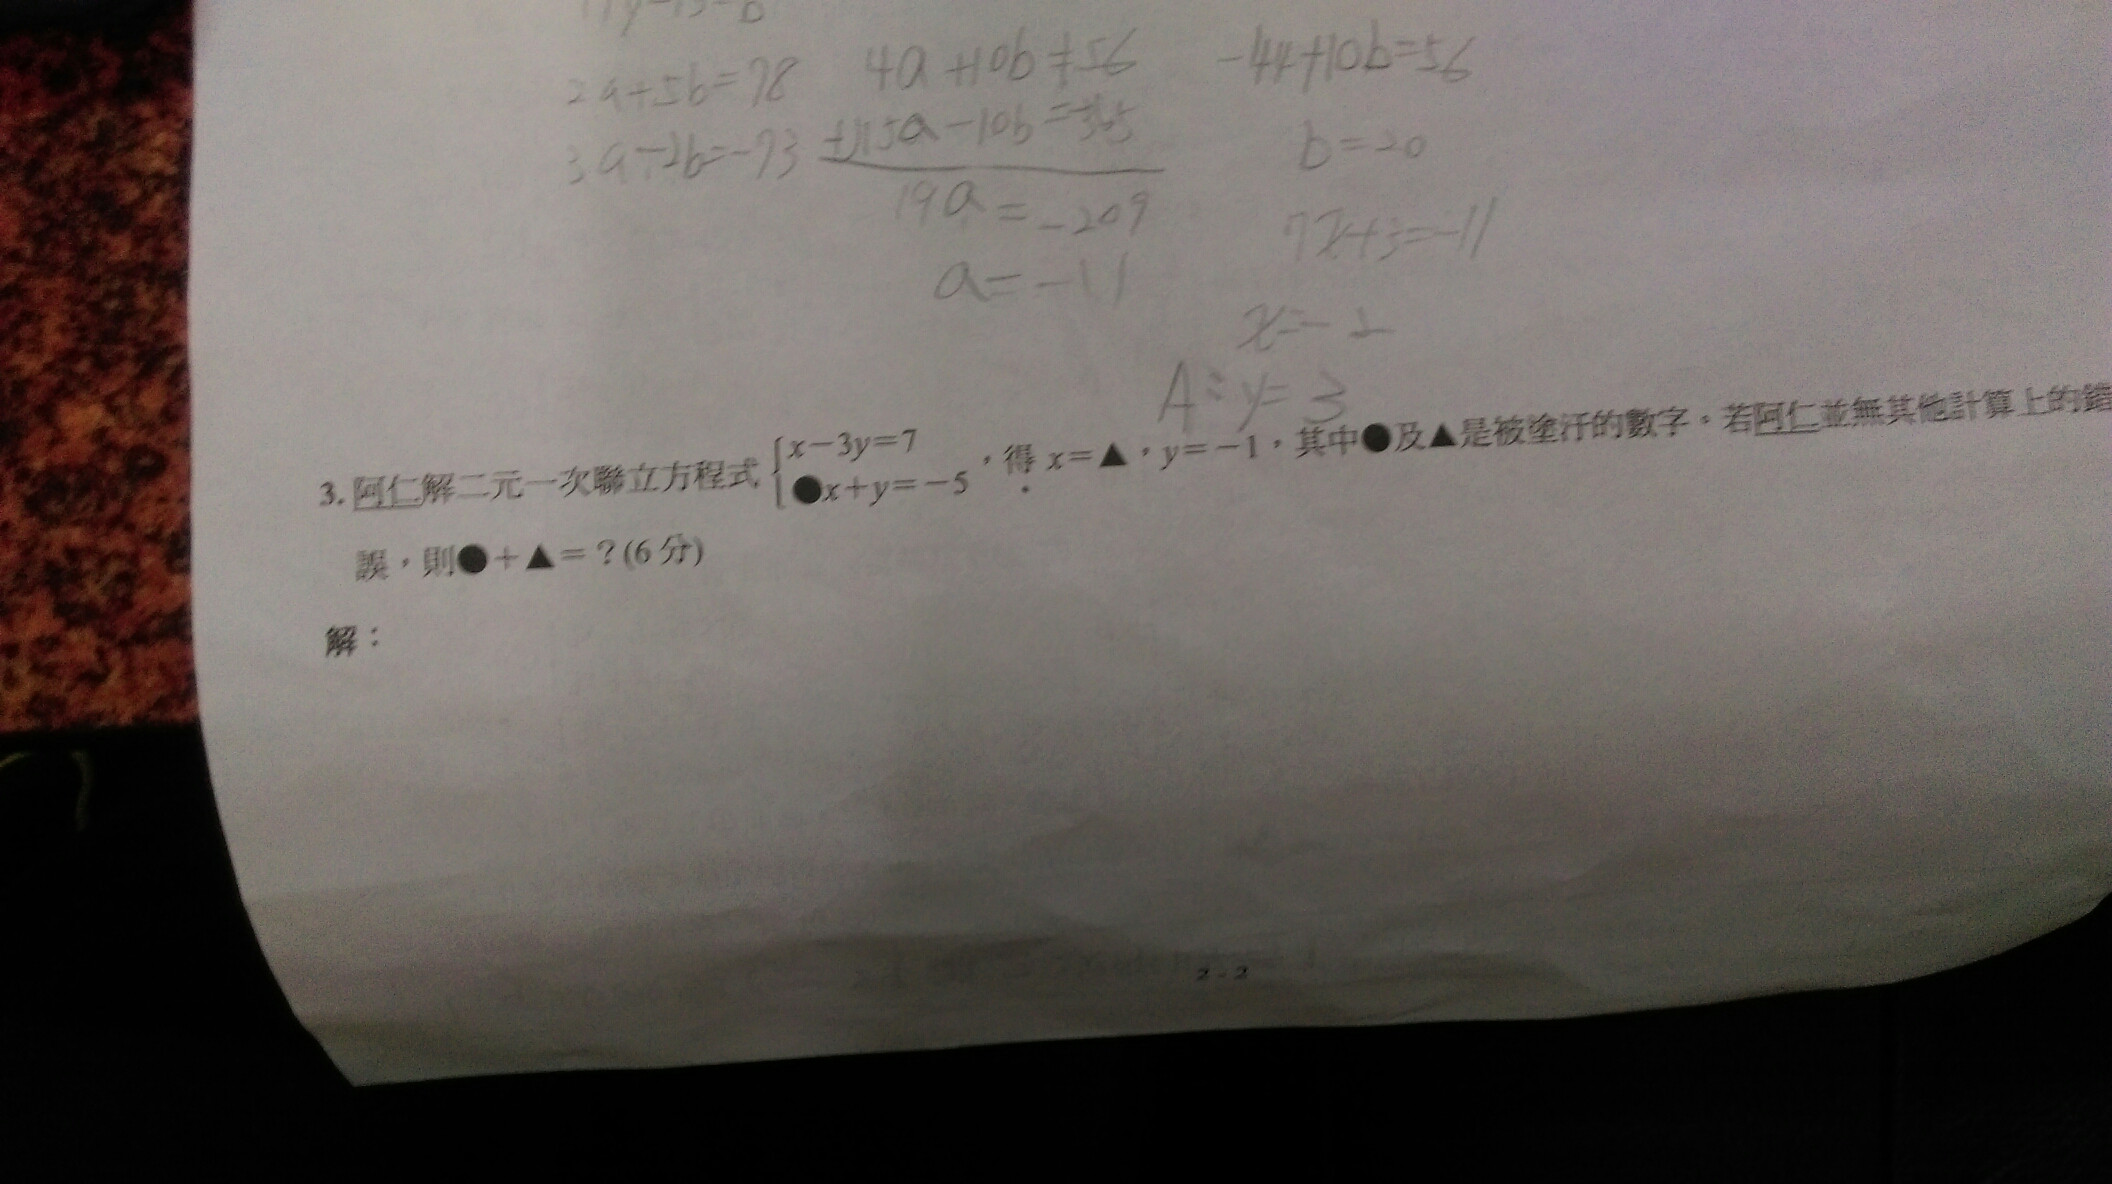 2a+5b=78 4a+10b=56 -44+10b=56
3a-2b=-73 +)15a-10b=-365 b=20
19a=-209 7x+3=-11
a=-11
x=-2
A:y=3
3. 阿仁解二元一次聯立方程式 {x-3y=7
●x+y=-5 ,得 x=▲,y=-1,其中●及▲是被塗汙的數字。若阿仁並無其他計算上的錯
誤,則●+▲=?(6分)
解:
2-2